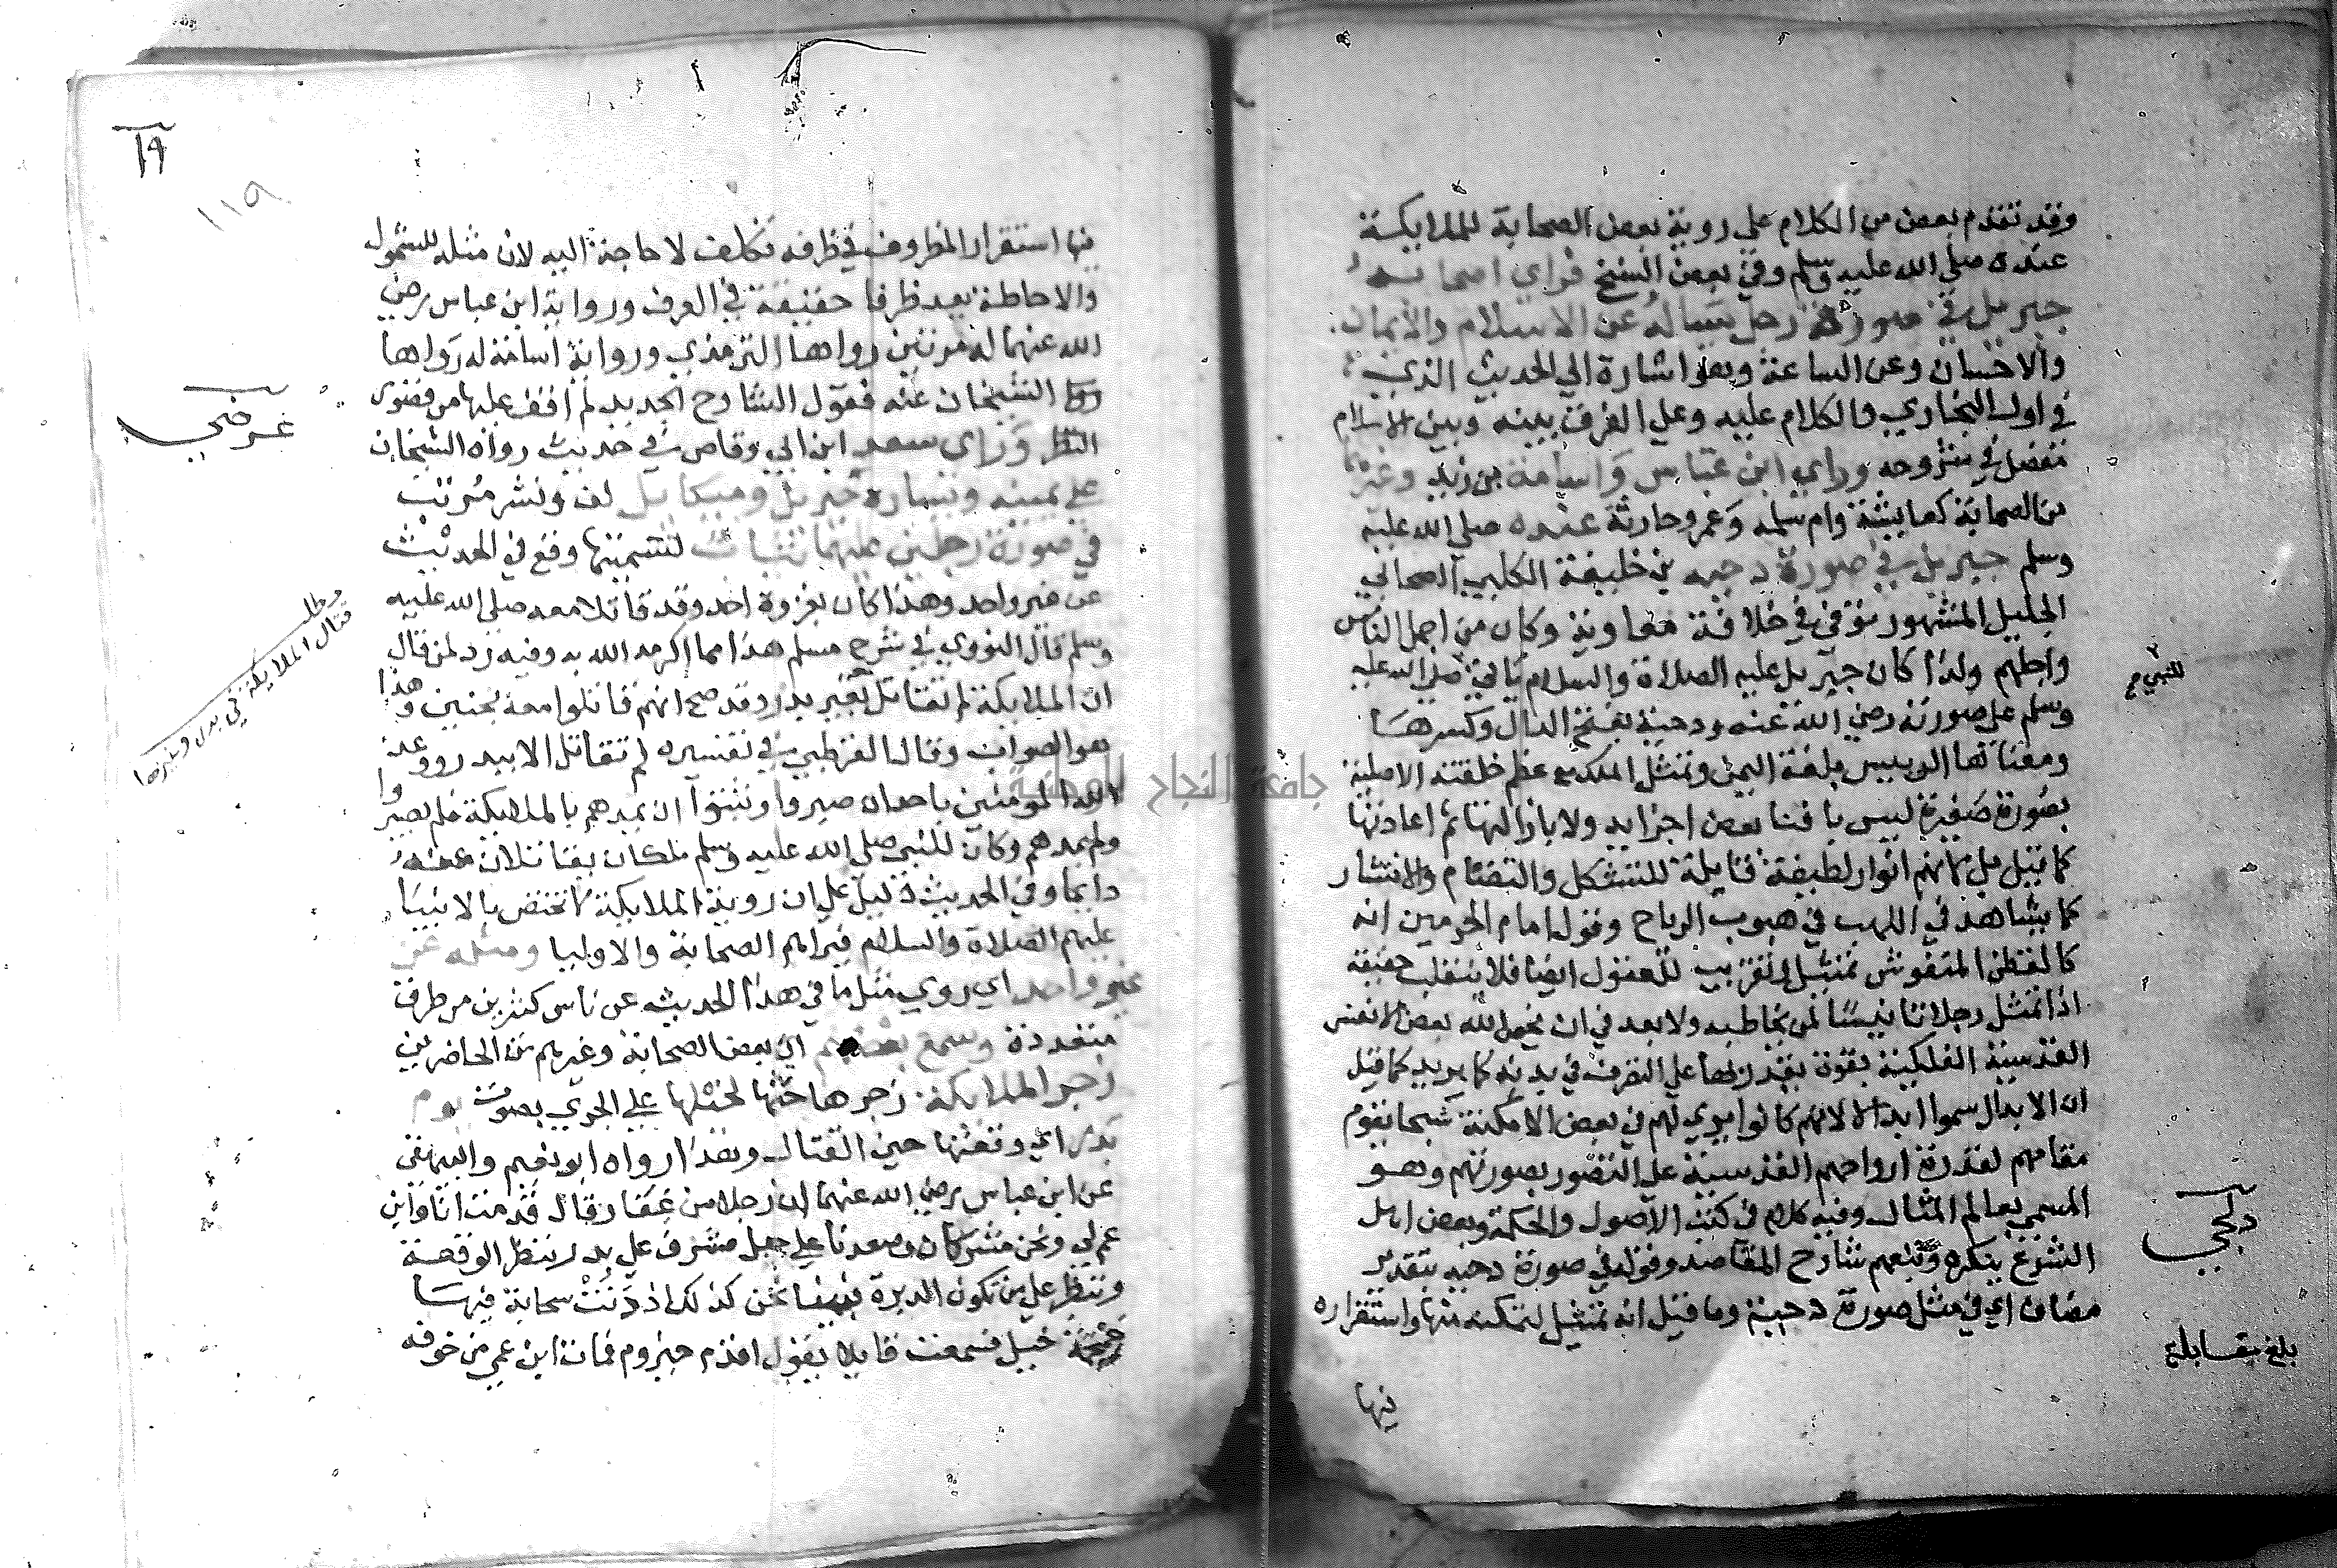 وقد تقدم بعض من الكلام علي روية بعض الصحابة للملايكة
عنده صلي الله عليه وسلم وفي بعض النسخ فراي اصحابه
جبريل في صورة رجل يساله عن الاسلام والايمان
والاحسان وعن الساعة وهو اشارة الي الحديث الذي
في اول البخاري والكلام عليه وعلي الفرق بينه وبين الاسلام
مفصل في شروحه وراي ابن عباس واسامة بن زيد وغيرهما
من الصحابة كعايشة وام سلمه وعمر وحارثة عنده صلي الله عليه
وسلم جبريل في صورة دحيه بن خليفة الكلبي الصحابي
الجليل المشهور توفي في خلافة معاوية وكان من اجمل الناس
واجلهم ولذا كان جبريل عليه الصلاة والسلام ياتي صلي الله عليه
للنبي صح
وسلم علي صورته رضي الله عنه ودحية بفتح الدال وكسرها
ومعناها الرييس بلغة اليمن وتمثل الملك مع عظم خلقته الاصلية
بصورة صغيرة ليس بافنا بعض اجزايه ولا بازالتها ثم اعادتها
كما قيل بل لانهم انوار لطيفة قابلة للتشكل والتضام والانتشار
كما يشاهد في اللهب في هبوب الرياح وقول امام الحرمين انه
كالقطن المنفوش تمثيل وتقريب للعقول ايضا فلا ينقلب حقيقة
اذا تمثل رجلا تانيسا لمن يخاطبه ولا بعد في ان يخص الله بعض الانفس
القدسية الملكية بقوة يقدر بها علي التصرف في بدنه كما يريد كما قيل
ان الابدال سموا ابدالا لانهم كانوا يري لهم في بعض الامكنة شبحا يقوم
مقامهم لقدرة ارواحهم القدسية علي التصور بصورتهم وهو
المسمي بعالم المثال وفيه كلام في كتب الاصول والحكمة وبعض اهل
دلجي
الشرع ينكره وتبعهم شارح المقاصد وقوله في صورة دحيه بتقدير
مضاف اي في مثل صورة دحية وما قيل انه تمثيل لتمكنه منها واستقراره
بلغ مقابلة
فيها
١١٩
فيها استقرار المظروف في ظرفه تكلف لا حاجة اليه لان مثله للشمول
والاحاطة يعد ظرفا حقيقة في العرف ورواية ابن عباس رضي
الله عنهما له مرتين رواها الترمذي ورواية اسامة له رواها
الشيخان عنه فقول الشارح الجديد لم اقف عليها من قصور
غرضي
النظر وراي سعد ابن ابي وقاص في حديث رواه الشيخان
علي يمينه ويساره جبريل وميكاييل لف ونشر مرتب
في صورة رجلين عليهما ثياب لتسميتها وقع في الحديث
عن غير واحد وهذا كان بغزوة احد وقد قاتلا معه صلي الله عليه
مطلب
قتال الملايكة في بدر وغيرها
وسلم قال النووي في شرح مسلم هذا مما اكرمه الله به وفيه رد لمن قال
ان الملايكة لم تقاتل بغير بدر وقد صح انهم قاتلوا معه بحنين وهذا
هو الصواب وقال القرطبي في تفسيره لم تقاتل الا ببدر ووعد
الله المومنين باحد ان صبروا وثبتوا ان يمدهم بالملايكة فلم يصبروا
ولم يمدهم وكان للنبي صلي الله عليه وسلم ملكان يقاتلان عنه
دايما وفي الحديث دليل علي ان روية الملايكة لا تختص بالانبيا
عليهم الصلاة والسلام فيراهم الصحابة والاوليا ومثله عن
غير واحد اي روي مثل ما في هذا الحديث عن ناس كثيرين من طرق
متعددة وسمع بعضهم اي بعض الصحابة وغيرهم من الحاضرين
زجر الملايكة زجرها حثها لخيلها علي الجري بصوت يوم
بدر اي وقعتها حين القتال وهذا رواه ابو نعيم والبيهقي
عن ابن عباس رضي الله عنهما ان رجلا من غفار قال قدمت انا وابن
عم لي ونحن مشركان وصعدنا علي جبل مشرف علي بدر ننتظر الوقعة
وننظر علي من تكون الدبرة فبينما نحن كذلك اذ دنت سحابة فيها
حمحمة خيل فسمعت قايلا يقول اقدم حيزوم فمات ابن عمي من خوفه
جامعة النجاح الوطنية